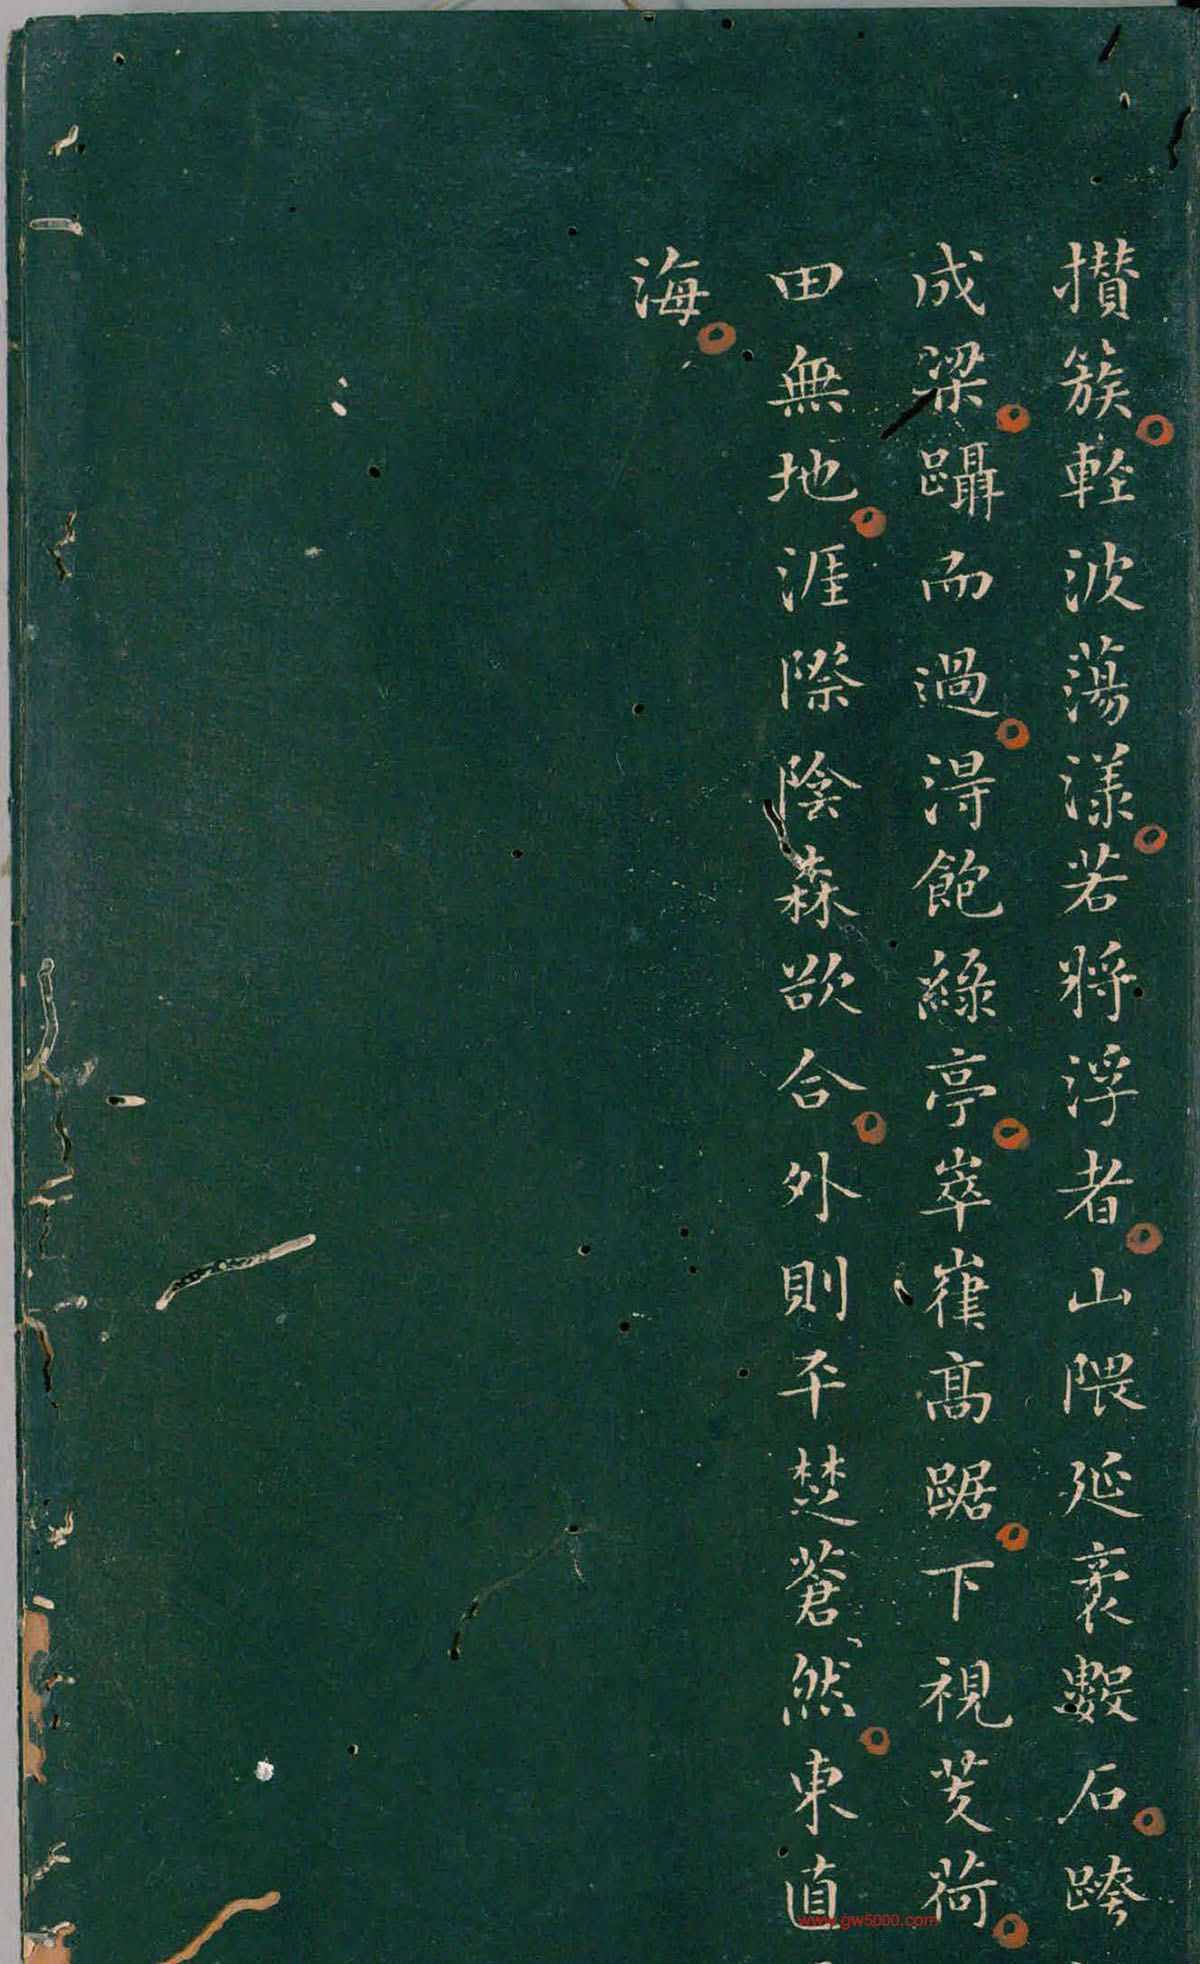 攅簇輕波蕩漾若將浮者山隈延袤數石跨
成梁躡而過淂飽綠亭崒嵂髙踞下視芰荷
田無地涯際陰森欲合外則平楚蒼然東直
海
www.gw5000.com